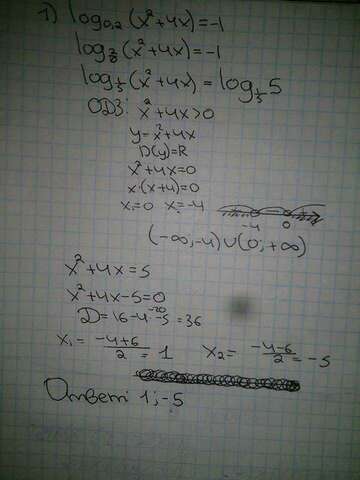 1) log₀,₂(x²+4x)=-1
log_2/8(x²+4x)=-1
log_1/5(x²+4x)=log_1/5 5
ОДЗ: x²+4x>0
y=x²+4x
D(y)=R
x²+4x=0
x·(x+4)=0
x₁=0 x=-4
-4 0
(-∞;-4)∪(0;+∞)
x²+4x=5
x²+4x-5=0
D=16-4·-5=36
-20
x₁=(-4+6)/2=1 x₂=(-4-6)/2=-5
Ответ: 1;-5